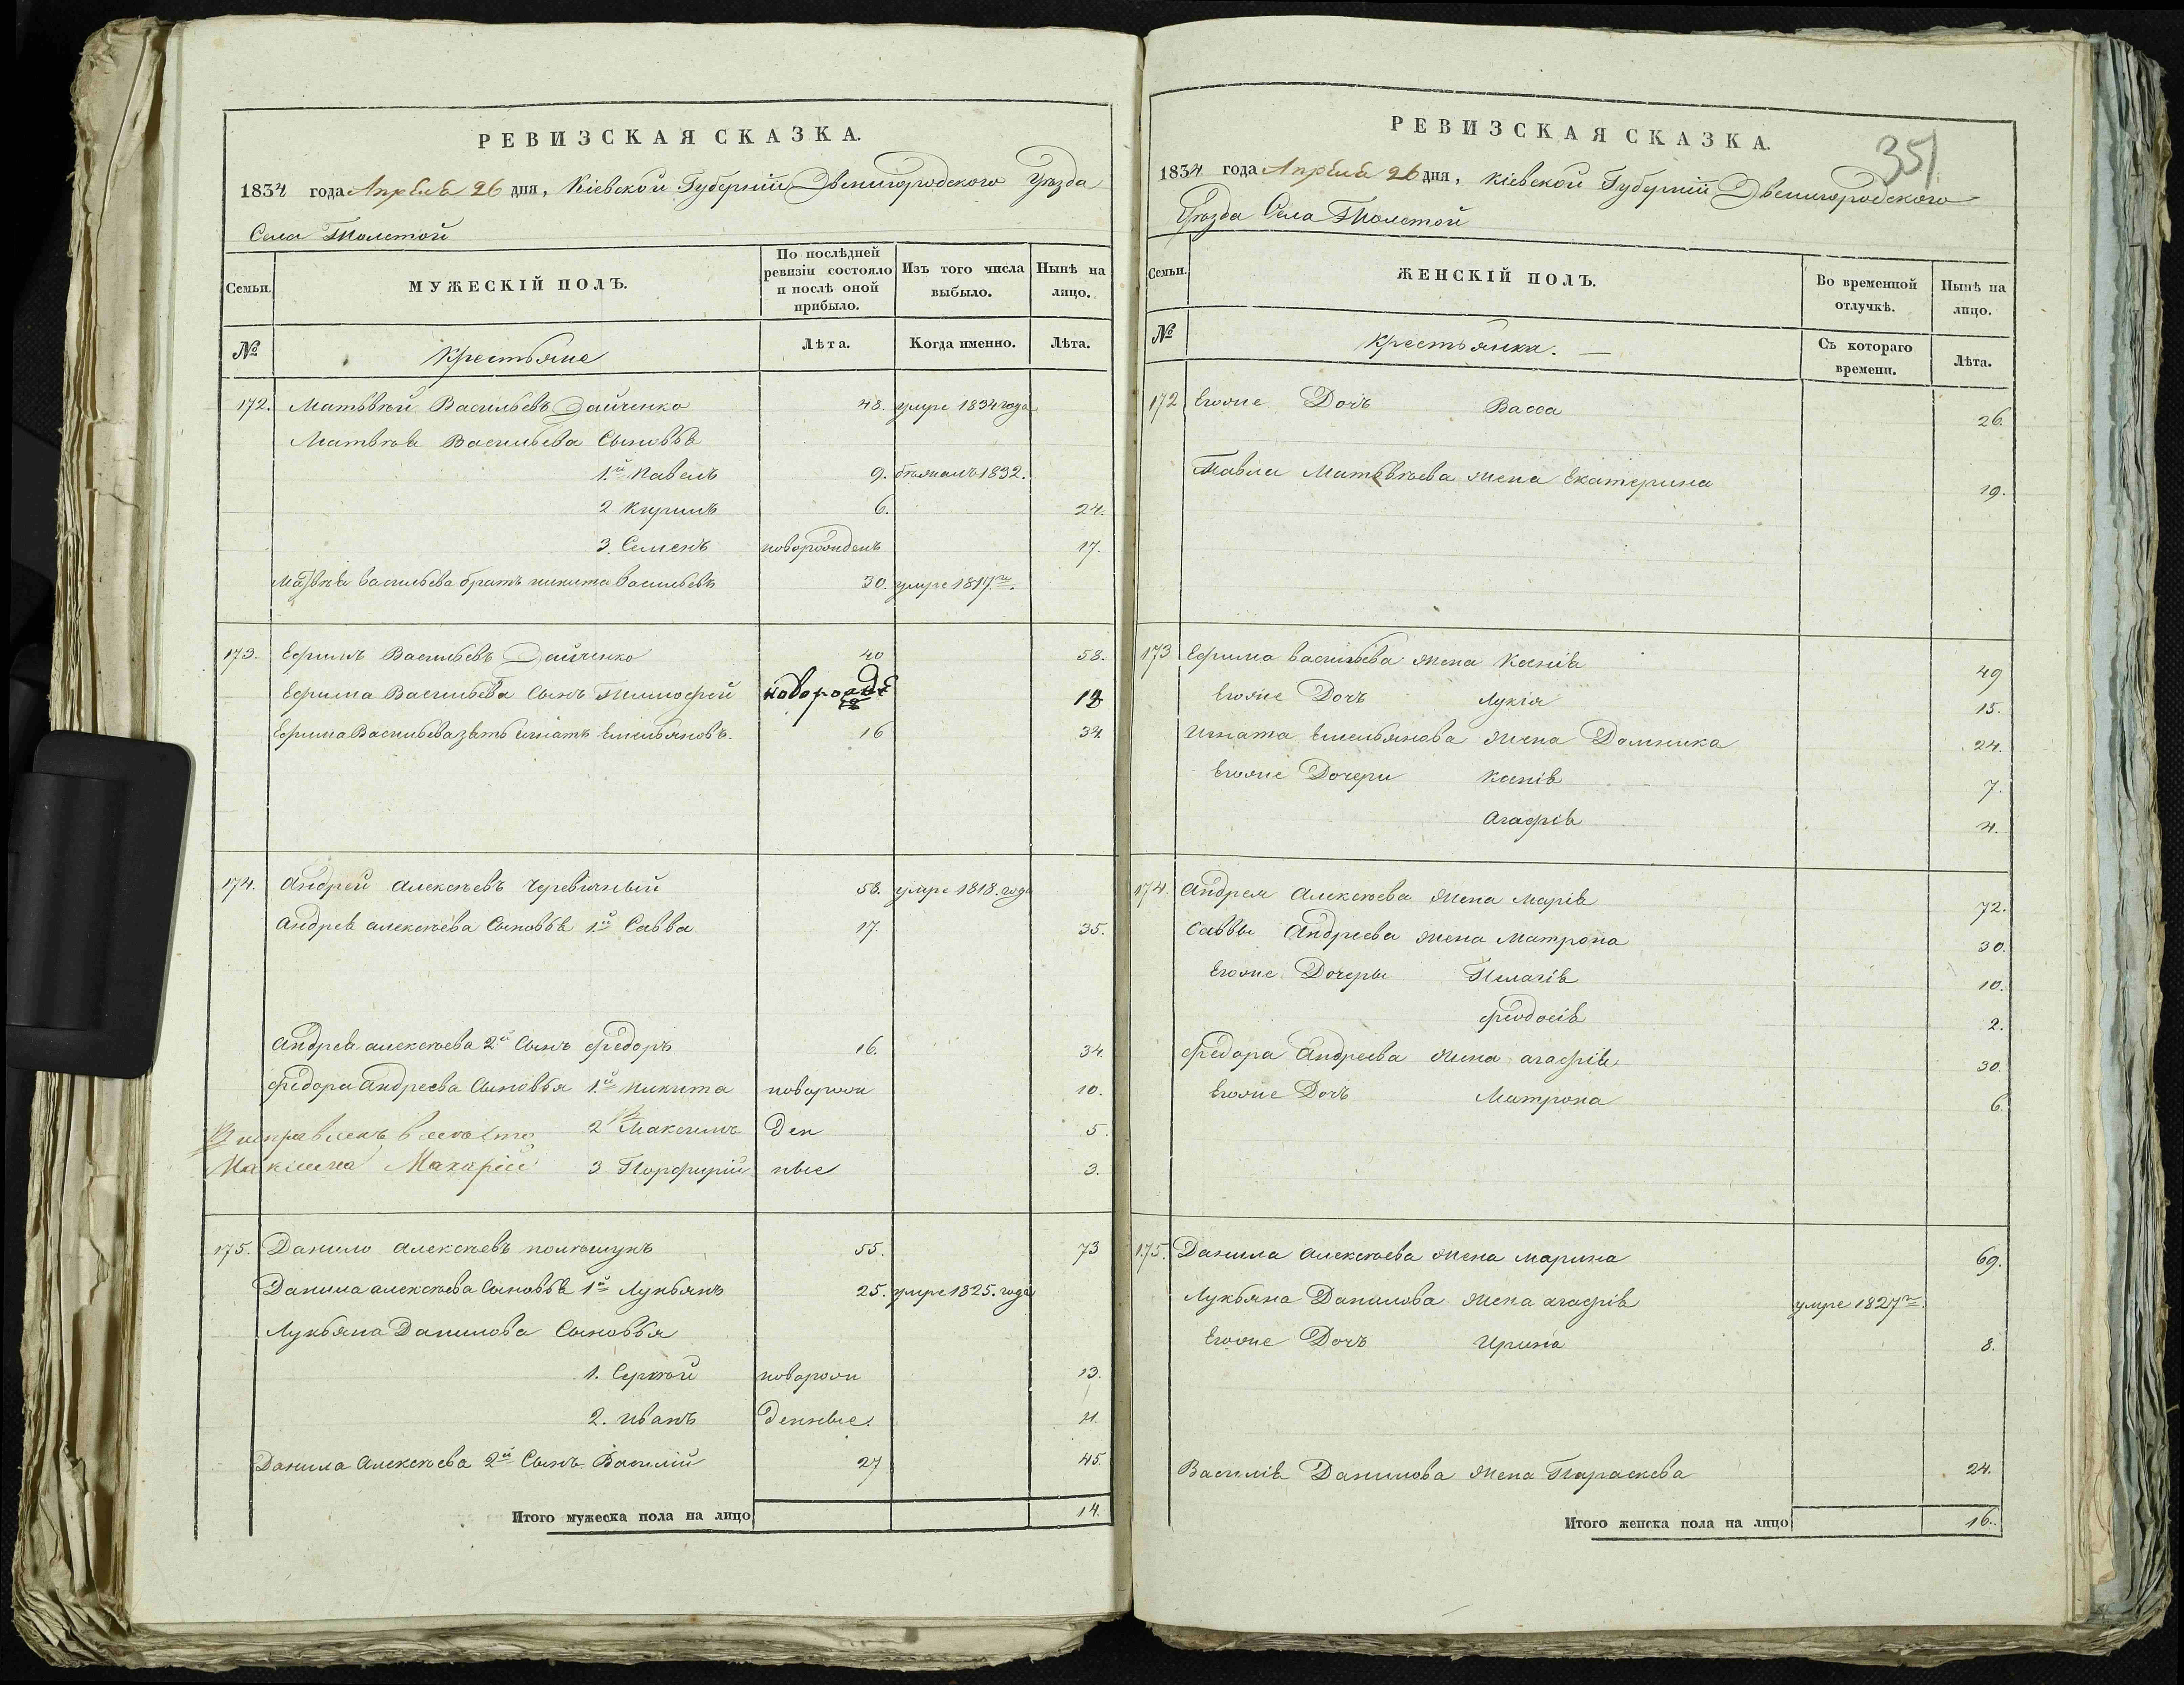 РЕВИЗСКАЯ СКАЗКА.
1834 года Апреля 26 дня, Кіевской Губерніи Звенигородского Уезда
Села Толстой
Семьи.
МУЖЕСКІЙ ПОЛЪ.
По послѣдней ревизіи состояло и послѣ оной прибыло.
Изъ того числа выбыло.
Нынѣ на лицо.
№
Крестьяне
Лѣта.
Когда именно.
Лѣта.
172. Матьвѣй Васильевъ Дайченко 48. умре 1834 года
Матвѣя Васильева Сыновья
1й Павелъ 9. бѣжалъ 1832.
2 Кирилъ 6. 24.
3. Семенъ новорожденъ 17.
Матвѣя Васильева братъ никита Васильевъ 30. умре 1817го.
173. Ефимъ Васильевъ Дайченко 40 58.
Ефима Васильева Сынъ Тимофей новорожд 12
Ефима Васильева зять Игнатъ Емельяновъ. 16 34.
174. Андрей Алексѣевъ Черевичный 58. умре 1818. года
Андрея алексѣева Сыновья 1й Савва 17. 35.
Андрея алексѣева 2й Сынъ федоръ 16. 34.
федора Андреева Сыновья 1й Никита новорож 10.
В исправленъ вместо 2 Максимъ Ден 5.
Максима Макарій 3. Порфирій ные 3.
175. Данило Алексѣевъ 55. 73
Данила алексѣева Сыновья 1й Лукьянъ 25. умре 1825. года
Лукьяна Данилова Сыновья
1. Сергѣй новорож 13.
2. иванъ Денные. 11.
Данила Алексѣева 2й Сынъ Василій 27 45
Итого мужеска пола на лицо 14.
РЕВИЗСКАЯ СКАЗКА.
351
1834 года Апреля 26 дня, Кіевской Губерніи Звенигородского
Уезда Села Толстой
Семьи.
ЖЕНСКІЙ ПОЛЪ.
Во временной отлучкѣ.
Нынѣ на лицо.
№
Крестьянки. —
Съ котораго времени.
Лѣта.
172 Егоже Дочь Васса 26.
Павла Матьвѣева жена Екатерина 19.
173 Ефима Васильева жена Ксенія 49
Егоже Дочь Лукія 15.
Игната Емельянова жена Домника 24.
Егоже Дочери Ксенія 7.
Агафія 4.
174. Андрея Алексѣева жена Марія 72.
Саввы Андреева жена Матрона 30.
Егоже Дочеры Пелагія 10.
феодосія 2.
федора Андреева жена агафія 30.
Егоже Дочь Матрона 6.
175. Данила Алексѣева жена марина 69.
Лукьяна Данилова жена агафія умре 1827г.
Егоже Дочь Ирина 8.
Василія Данилова жена Параскева 24.
Итого женска пола на лицо 16.